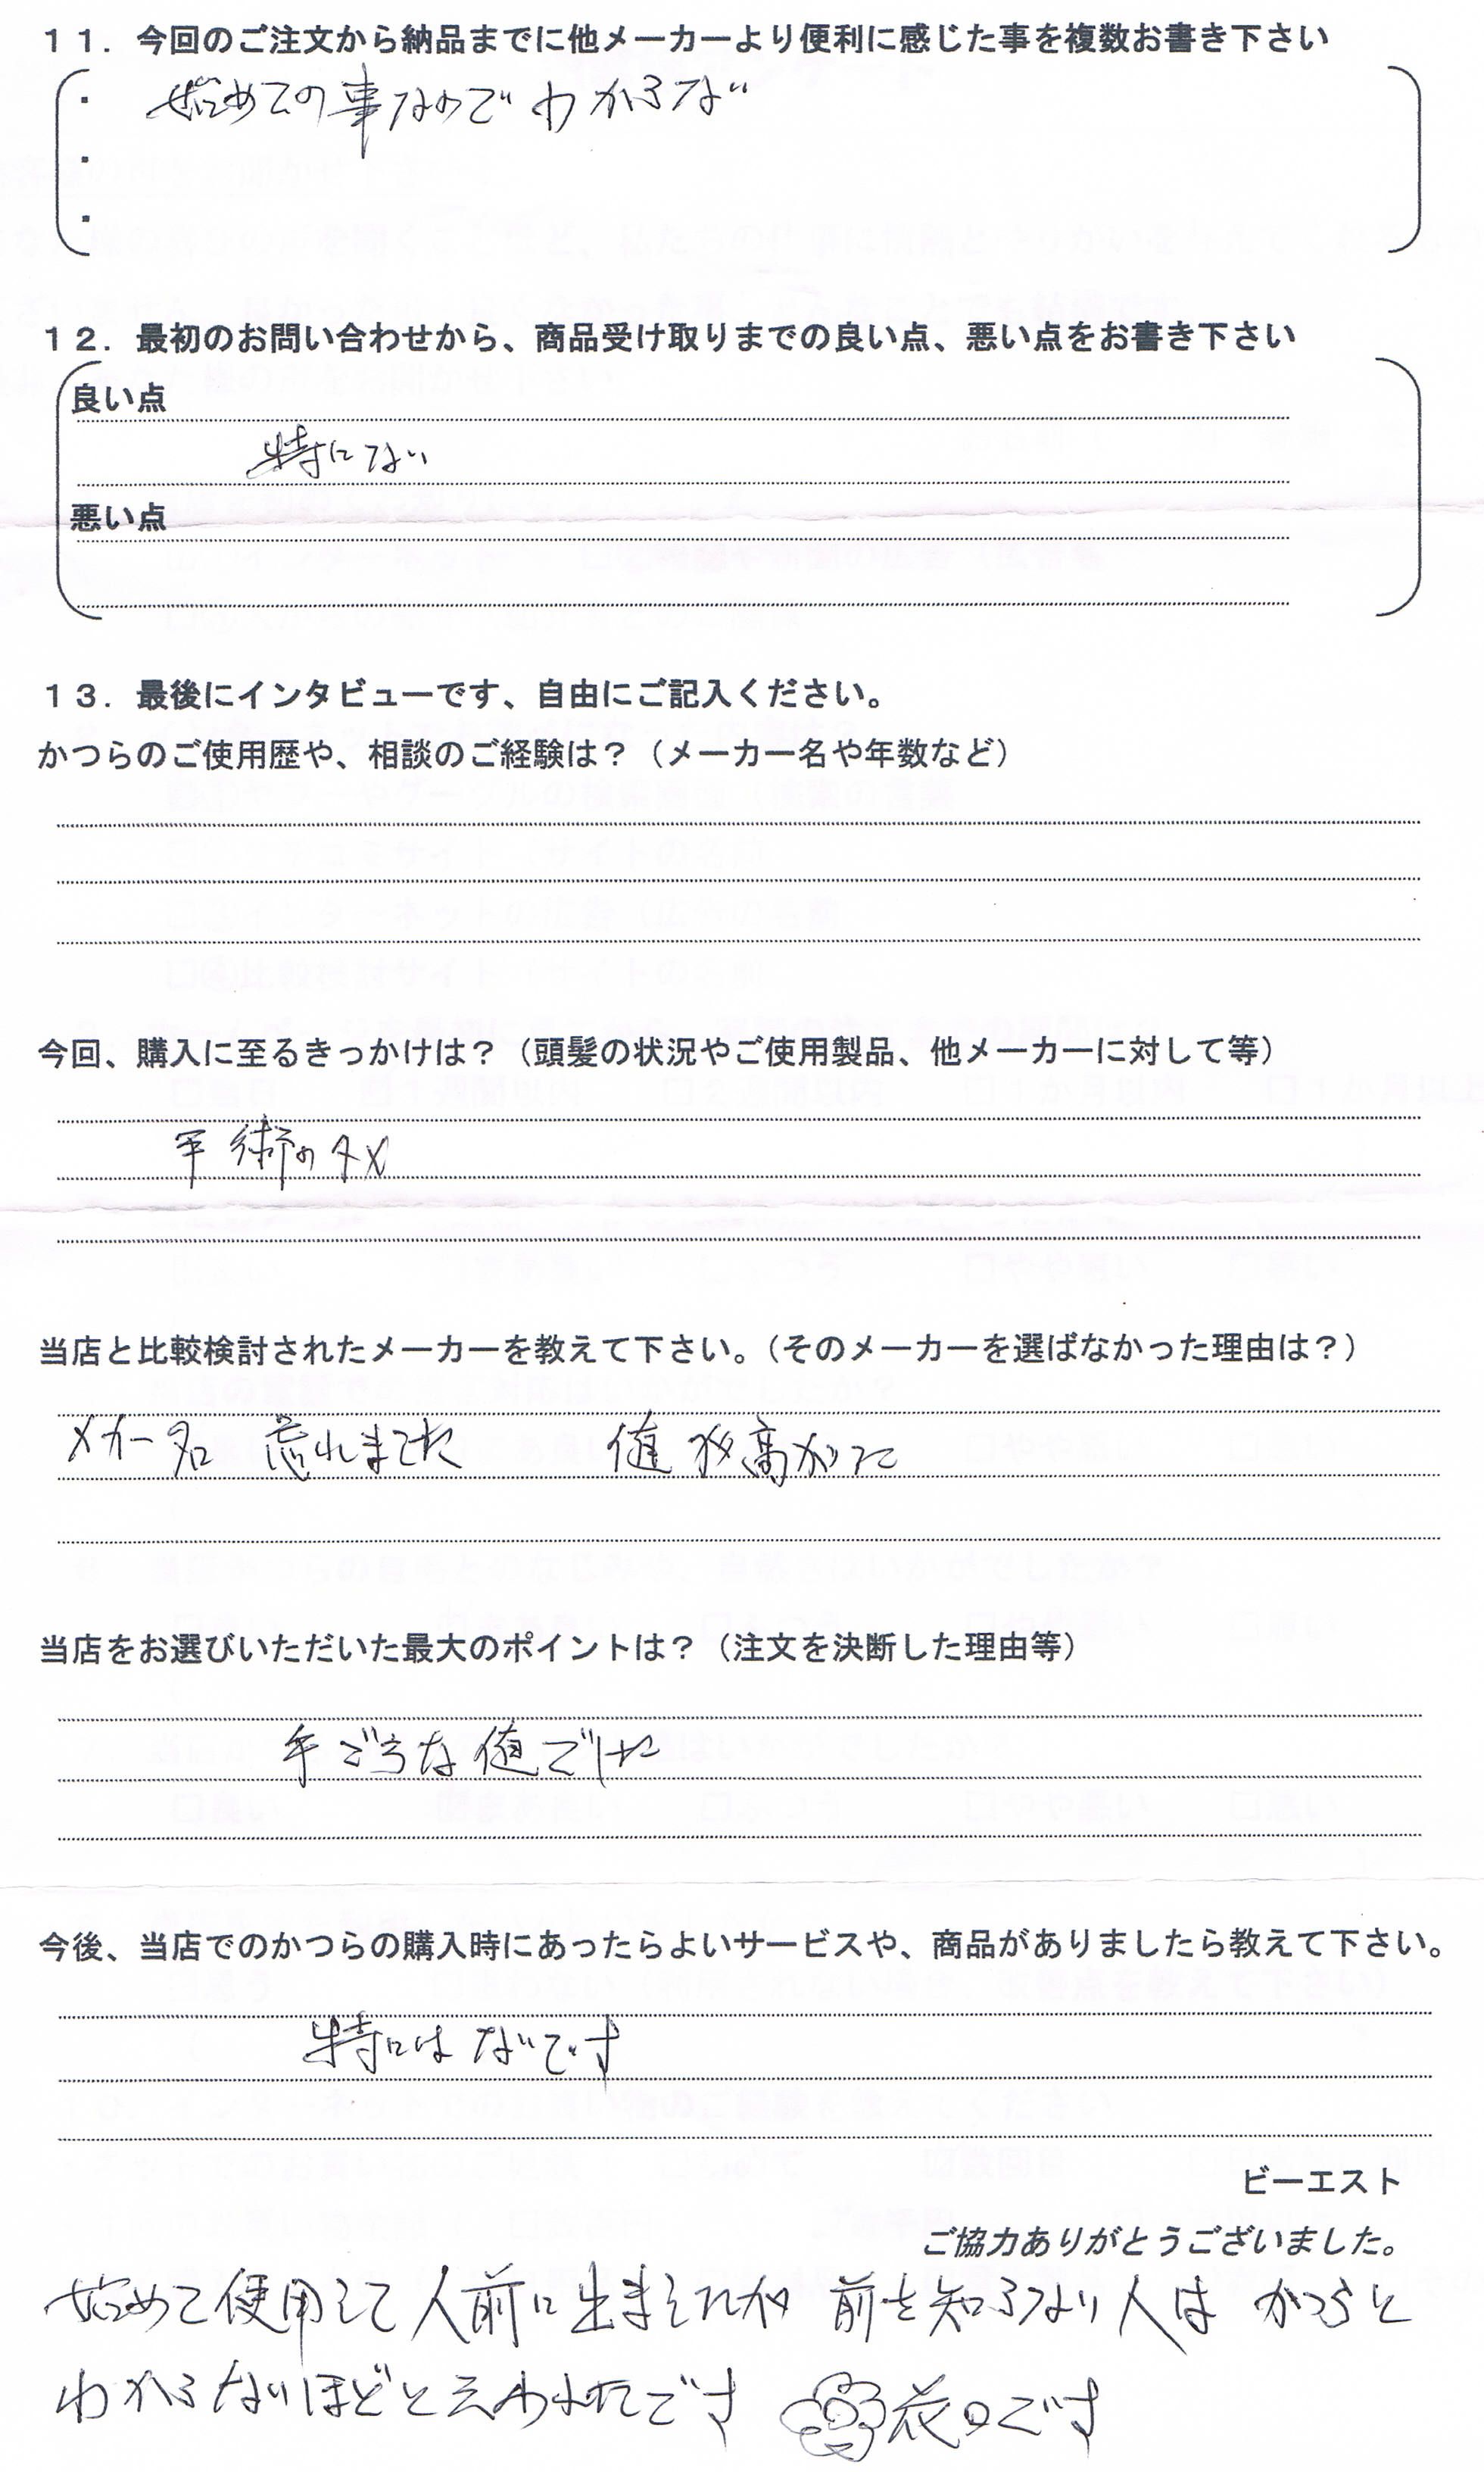 １１．今回のご注文から納品までに他メーカーより便利に感じた事を複数お書き下さい
・ 始めての事なのでわからない
・
・
１２．最初のお問い合わせから、商品受け取りまでの良い点、悪い点をお書き下さい
良い点
特にない
悪い点
１３．最後にインタビューです、自由にご記入ください。
かつらのご使用歴や、相談のご経験は？（メーカー名や年数など）
今回、購入に至るきっかけは？（頭髪の状況やご使用製品、他メーカーに対して等）
手術のタメ
当店と比較検討されたメーカーを教えて下さい。（そのメーカーを選ばなかった理由は？）
メカー名 忘れました 値が高かった
当店をお選びいただいた最大のポイントは？（注文を決断した理由等）
手ごろな値でした
今後、当店でのかつらの購入時にあったらよいサービスや、商品がありましたら教えて下さい。
特にはないです
ビーエスト
ご協力ありがとうございました。
始めて使用して人前に出ましたが 前を知らない人は かつらと
わからないほどと云われたです 花〇です